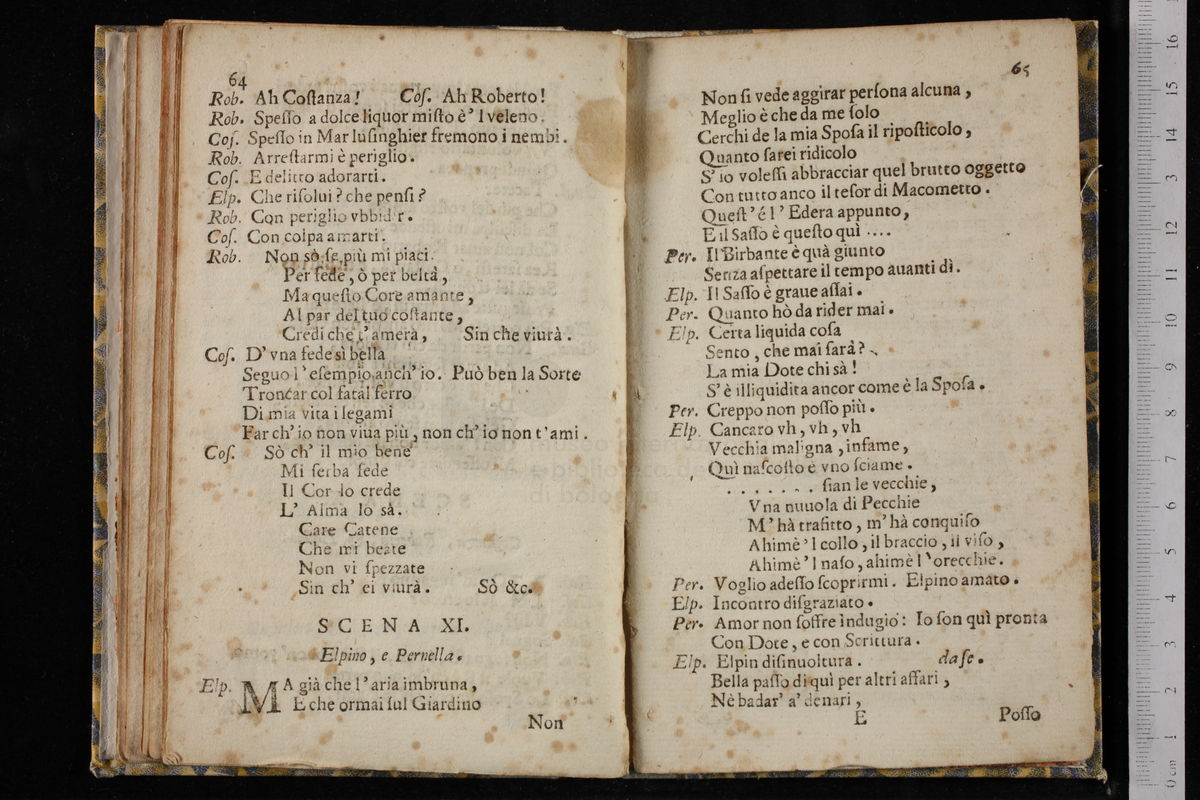 64
Rob. Ah Coſtanza! Coſ. Ah Roberto!
Rob. Speſſo a dolce liquor miſto è 'l veleno.
Coſ. Speſſo in Mar luſinghier fremono i nembi.
Rob. Arreſtarmi è periglio.
Coſ. E delitto adorarti.
Elp. Che riſolui? che penſi?
Rob. Con periglio vbbidir.
Coſ. Con colpa amarti.
Rob. Non sò ſe più mi piaci.
Per fede, ò per beltà,
Ma queſto Core amante,
Al par del tuo coſtante,
Credi che t'amerà, Sin che viurà.
Coſ. D'vna fede sì bella
Seguo l'eſempio anch'io. Può ben la Sorte
Troncar col fatal ferro
Di mia vita i legami
Far ch'io non viua più, non ch'io non t'ami.
Coſ. Sò ch' il mio bene
Mi ſerba fede
Il Cor lo crede
L' Alma lo sà.
Care Catene
Che mi beate
Non vi ſpezzate
Sin ch' ei viurà. Sò &c.
SCENA XI.
Elpino, e Pernella.
Elp. MA già che l'aria imbruna,
E che ormai ſul Giardino
Non
65
Non ſi vede aggirar perſona alcuna,
Meglio è che da me ſolo
Cerchi de la mia Spoſa il ripoſticolo,
Quanto ſarei ridicolo
S'io voleſſi abbracciar quel brutto oggetto
Con tutto anco il teſor di Macometto.
Queſt'é l'Edera appunto,
E il Saſſo è queſto quì ....
Per. Il Birbante è quà giunto
Senza aſpettare il tempo auanti dì.
Elp. Il Saſſo è graue aſſai.
Per. Quanto hò da rider mai.
Elp. Certa liquida coſa
Sento, che mai ſarà?
La mia Dote chi sà!
S'è illiquidita ancor come è la Spoſa.
Per. Creppo non poſſo più.
Elp. Cancaro vh, vh, vh
Vecchia maligna, infame,
Quì naſcoſto è vno ſciame.
. . . . . . . ſian le vecchie,
Vna nuuola di Pecchie
M'hà trafitto, m'hà conquiſo
Ahimè 'l collo, il braccio, il viſo,
Ahimè 'l naſo, ahimè l'orecchie.
Per. Voglio adeſſo ſcoprirmi. Elpino amato.
Elp. Incontro diſgraziato.
Per. Amor non ſoffre indugio: Io ſon quì pronta
Con Dote, e con Scrittura.
Elp. Elpin diſinuoltura. da ſe.
Bella paſſo di quì per altri affari,
Nè badar' a' denari,
E Poſſo